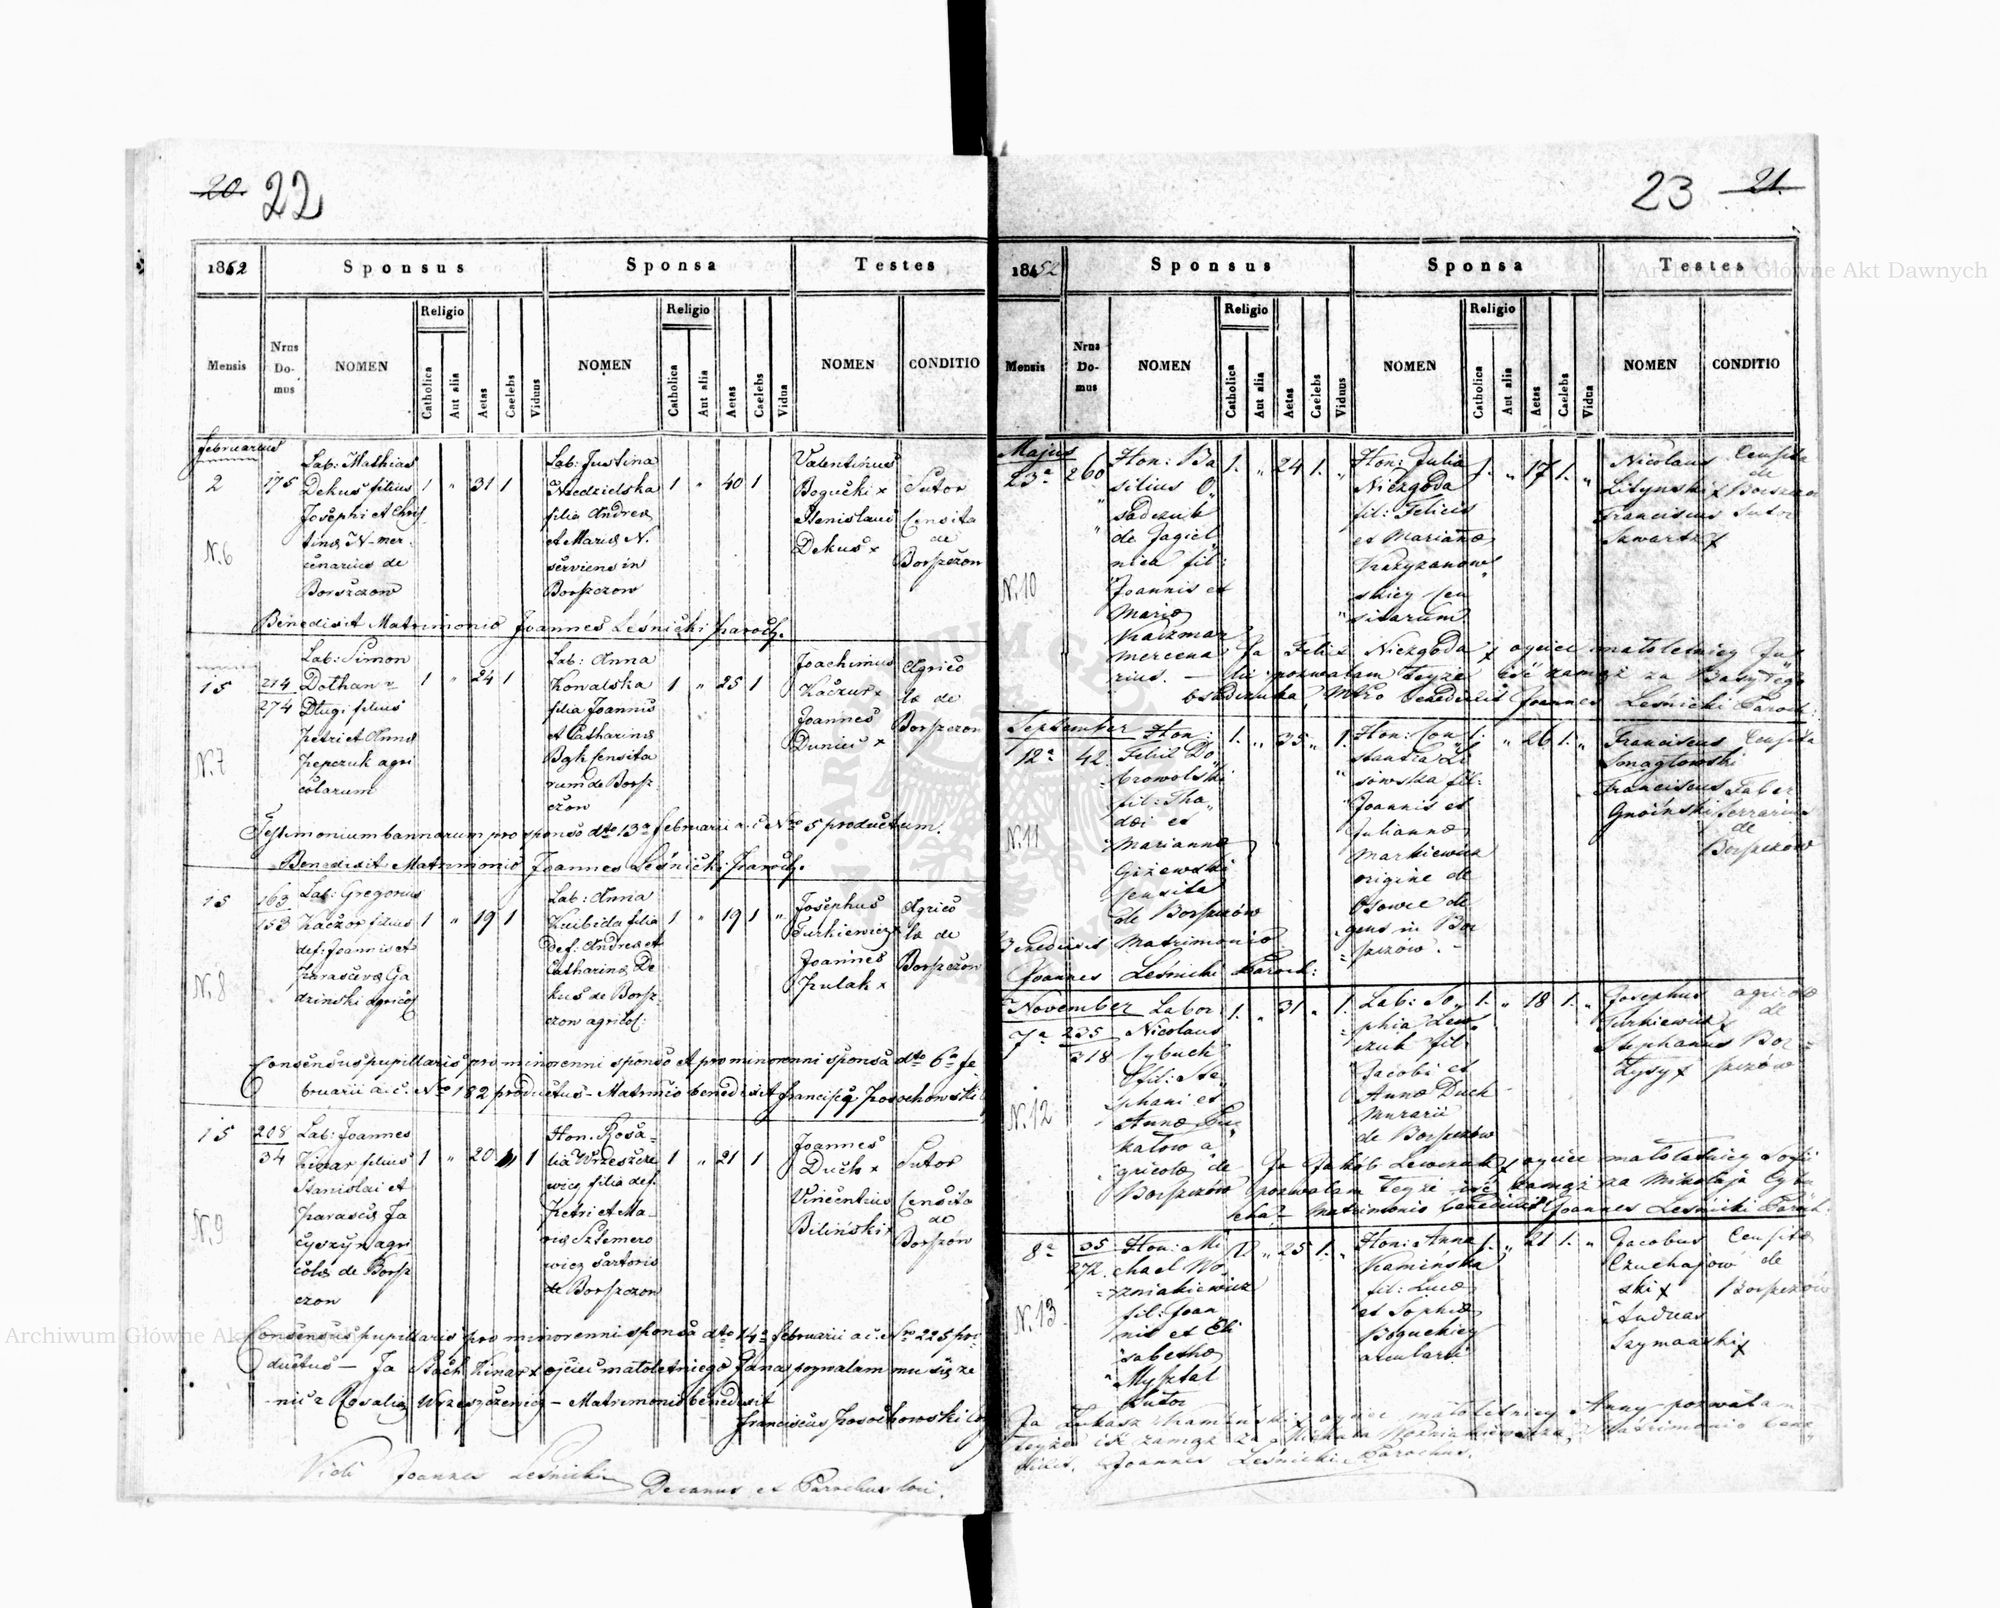 20. 22
1852 Sponsus Sponsa Testes
Mensis Nrus Domus NOMEN Religio Catholica Aut alia Aetas Caelebs Viduus NOMEN Religio Catholica Aut alia Aetas Caelebs Vidua NOMEN CONDITIO
februarius
2
N.6
175
Lab: Mathias
Dekus filius
Josephi et Chris
tina N- mer
cenarius de
Borszczow
1 " 31 1
Lab: Justina
Niedzielska
filia Andrea
et Maria N.
serviens in
Borszczow
1 " 40 1
Valentinus
Bogucki x
Stanislaus
Dekus x
Sutor
Censita
de
Borszczow
Benedixit Matrimonio Joannes Leśnicki Paroch.
15
N.7
214
274
Lab: Simon
Dothan v
Długi filius
Petri et Anna
Pepczuk agri
colarum
1 " 24 1
Lab: Anna
Kowalska
filia Joannis
et Catharina
Bgk Censita
rum de Borsz-
czow
1 " 25 1
Joachimus
Kaczur x
Joannes
Dunic x
Agrico
la de
Borszczow
Testimonium bannorum pro sponso dto 13a februarii a. c. Nro 5 productum.
Benedixit Matrimonio Joannes Leśnicki Paroch.
15
N.8
163
153
Lab: Gregorius
Kaczor filius
def: Joannis et
Parasceva Ga
dzinski agricol
1 " 19 1
Lab: Anna
Kuibida filia
Def: Andrea et
Catharina De
kus de Borsz-
czow agricol:
1 " 19 1 "
Josephus
Turkiewicz x
Joannes
Pulak x
Agrico
la de
Borszczow
Consensus pupillaris pro minorenni sponso et pro minorenni sponsa dto 6a fe
bruarii a. c. Nro 182 productus - Matrimonio benedixit Francisc Posochowski
15
N.9
208
34
Lab: Joannes
Kinar filius
Stanislai et
Parascev Ja
cyszyn agri
cola de Borsz
czow
1 " 20 1
Hon. Rosa-
lia Wrzeszcze
wicz filia def.
Petri et Ma-
ria Sztemero
wicz Sartoris
de Borszczow
1 " 21 1
Joannes
Duch x
Vincentius
Biliński x
Sutor
Censita
de
Borszow
Consensus pupillaris pro minorenni sponsa dto 14a februarii a. c. Nro 225 pro
ductus - Ja Stach Kinar x ojciec małoletniego Jana pozwalam mu się że
nić z Rosalią Wrzeszczewicz - Matrimonio benedixit
Franciscus Posochowski
Vidi Joannes Leśnicki Decanus et Parochus loci.
23 21.
1852 Sponsus Sponsa Testes
Mensis Nrus Domus NOMEN Religio Catholica Aut alia Aetas Caelebs Viduus NOMEN Religio Catholica Aut alia Aetas Caelebs Vidua NOMEN CONDITIO
Majus
23a
N.10
260
Hon: Ba
silius O
sadczuk
de Jagiel
nica fil:
Joannis et
Maria
Kaczmar
mercena
rius. -
1. " 24 1. "
Hon: Julia
Niezgoda
fil: Felicis
et Marianna
Krzyzanow
skiey Cen
sitarum
1. " 17 1. "
Nicolaus
Litynski x
Franciscus
Szwartz x
Censita
de
Borszczow
Sutor
Ja Felix Niezgoda x oyciec małoletniey Ju
lii pozwalam teyże iść zamąż za Bazylego
Osadczuka, Mtrio benedixit Joannes Leśnicki Paroch:
September
12a
N.11
42.
Hon:
Felix Do
browolski
fil: Tha
dæi et
Marianna
Gizewski
Censita
de Borszczów
1. " 35 " 1.
Hon: Con
stantia Li
sowska fil:
Joannis et
Julianna
Markiewicz
origine de
Osowce de
gens in Bor
szczów. -
1. " 26 1. "
Franciscus
Smagłowski
Franciscus
Gnoinski
Censita
Faber
ferrarius
de
Borszczow
Benedixit Matrimonio
Joannes Leśnicki Paroch:
November
7a
N.12
235
318
Labor
Nicolaus
Cybuch
fil: Ste
phani et
Anna
kałow a
gricola de
Borszczów
1. " 31 " 1.
Lab: So
phia Lew
czuk fil:
Jacobi et
Anna Duch
Murarii
de Borszczow
1. " 18 1. "
Josephus
Turkiewicz x
Stephanus
Łysy x
agricola
de
Bor
szczów
Ja Jakób Lewczuk x oyciec małoletniey Zofii
pozwalam teyże iść zamąż za Mikołaja Cybu
cha - Matrimonio benedixit Joannes Leśnicki Paroch:
8a
N.13
35
272.
Hon: Mi
chael Wo
zniakiewicz
fil: Joan
nis et Eli
sabetha
Myształ
Sutor
1 " 25 1. "
Hon: Anna
Kamińska
fil: Luca
et Sophia
Boguckiey
arcularii
1. " 21 1. "
Jacobus
Czuchajow
ski x
Andreas
Szymanski x
Censita
de
Borszczów
Ja Łukasz Kamiński x oyciec małoletniey Anny pozwalam
teyże iść zamąż za Michała Wozniakiewicza, Matrimonio bene
dixit. Joannes Leśnicki Parochus.
Archiwum Główne Akt Dawnych